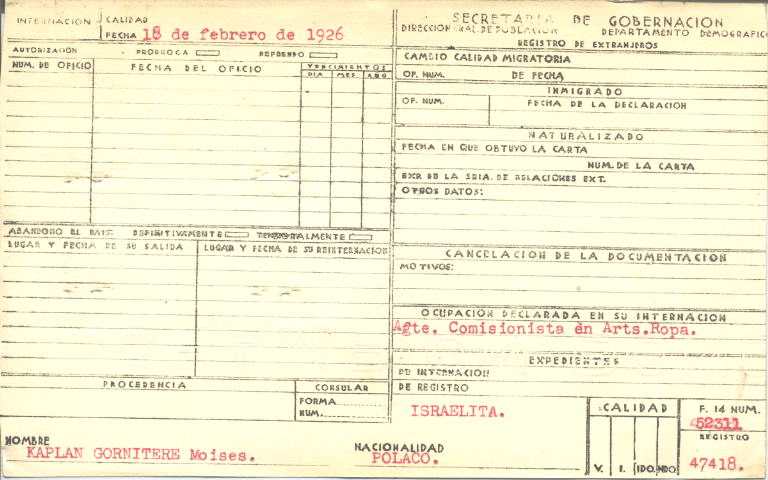 INTERNACION
CALIDAD
FECHA 18 de febrero de 1926
AUTORIZACION PRORROGA REFRENDO
NUM. DE OFICIO FECHA DEL OFICIO VENCIMIENTOS
DIA MES AÑO
ABANDONO EL PAIS DEFINITIVAMENTE TEMPORALMENTE
LUGAR Y FECHA DE SU SALIDA LUGAR Y FECHA DE SU REINTERNACION
PROCEDENCIA CONSULAR
FORMA
NUM.
SECRETARIA DE GOBERNACION
DIRECCION GRAL. DE POBLACION DEPARTAMENTO DEMOGRAFICO
REGISTRO DE EXTRANJEROS
CAMBIO CALIDAD MIGRATORIA
OF. NUM. DE FECHA
INMIGRADO
OF. NUM. FECHA DE LA DECLARACION
NATURALIZADO
FECHA EN QUE OBTUVO LA CARTA
NUM. DE LA CARTA
EXP. DE LA SRIA. DE RELACIONES EXT.
OTROS DATOS:
CANCELACION DE LA DOCUMENTACION
MOTIVOS:
OCUPACION DECLARADA EN SU INTERNACION
Agte. Comisionista en Arts.Ropa.
EXPEDIENTES
DE INTERNACION
DE REGISTRO
ISRAELITA.
CALIDAD
V. I. IDO. NDO
F. 14 NUM.
52311
REGISTRO
47418.
NOMBRE
KAPLAN GORNITERE Moises.
NACIONALIDAD
POLACO.